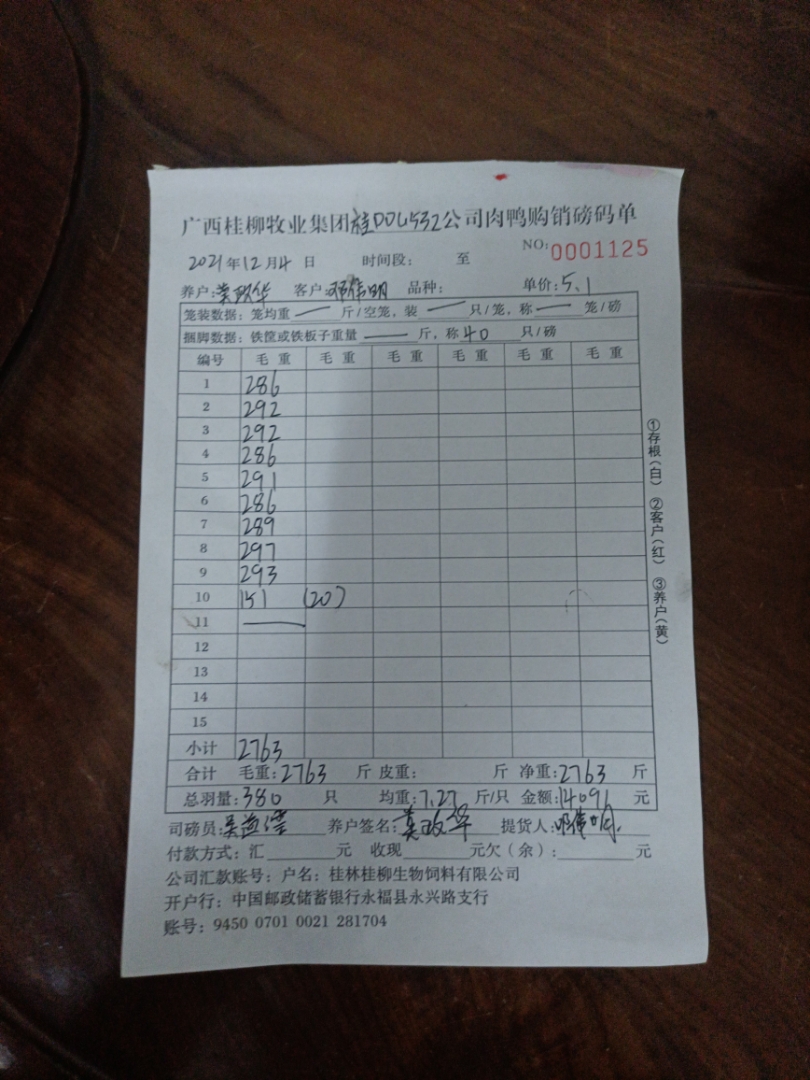 广西桂柳牧业集团桂D0U532公司肉鸭购销磅码单
NO: 0001125
2021年12月4日 时间段: 至
养户: 莫政华 客户: 邓伟明 品种: 单价: 5.1
笼装数据: 笼均重 — 斤/空笼, 装 — 只/笼, 称 — 笼/磅
捆脚数据: 铁筐或铁板子重量 — 斤, 称 40 只/磅
编号 毛重 毛重 毛重 毛重 毛重 毛重
1 286
2 292
3 292
4 286
5 291
6 286
7 289
8 297
9 293
10 151 (20)
11 —
12
13
14
15
小计 2763
合计 毛重: 2763 斤 皮重: 斤 净重: 2763 斤
总羽量: 380 只 均重: 7.27 斤/只 金额: 14091 元
司磅员: 养户签名: 莫政华 提货人: 邓伟明
付款方式: 汇 元 收现 元欠(余): 元
公司汇款账号: 户名: 桂林桂柳生物饲料有限公司
开户行: 中国邮政储蓄银行永福县永兴路支行
账号: 9450 0701 0021 281704
①存根(白) ②客户(红) ③养户(黄)